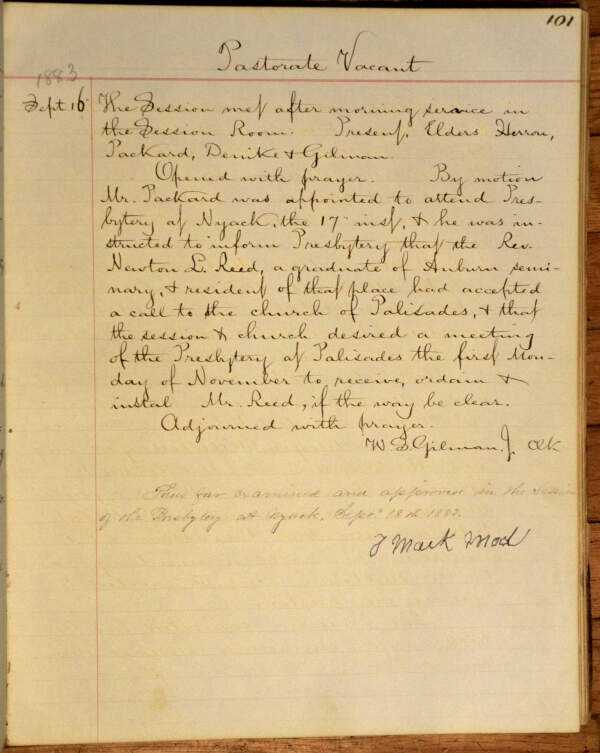 101
Pastorate Vacant
1883
Sept 16 The Session met after morning service in
the Session Room. Present, Elders Herron,
Packard, Denike & Gilman
Opened with prayer. By motion
Mr. Packard was appointed to attend Pres-
bytery at Nyack, the 17" inst, & he was in-
structed to inform Presbytery that the Rev.
Newton L. Reed, a graduate of Auburn semi-
nary, & resident of that place had accepted
a call to the church of Palisades, & that
the session & church desired a meeting
of the Presbytery at Palisades the first Mon-
day of November to, receive, ordain &
instal Mr. Reed, if the way be clear.
Adjourned with prayer.
W. S. Gilman. J. Clk
Thus far examined and approved in the
of the Presbytery at Nyack, Sept. 18th 1883.
Mark Mod